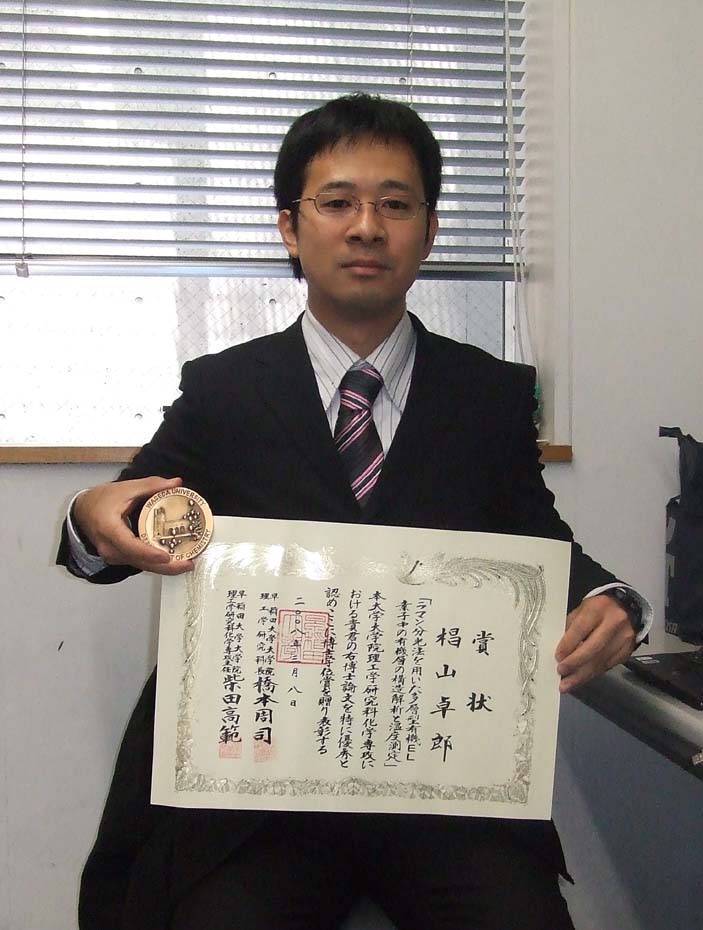 WASEDA UNIVERSITY
DEPARTMENT OF CHEMISTRY
賞状
椙山卓郎
「ラマン分光法を用いた多層型有機EL
素子中の有機層の構造解析と温度測定」
本大学大学院理工学研究科化学専攻に
おける貴君の右博士論文を特に優秀と
認めここに博士学位賞を贈り表彰する
二〇〇八年三月八日
早稲田大学大学院
理工学研究科長 橋本周司
早稲田大学大学院
理工学研究科化学専攻主任 柴田高範